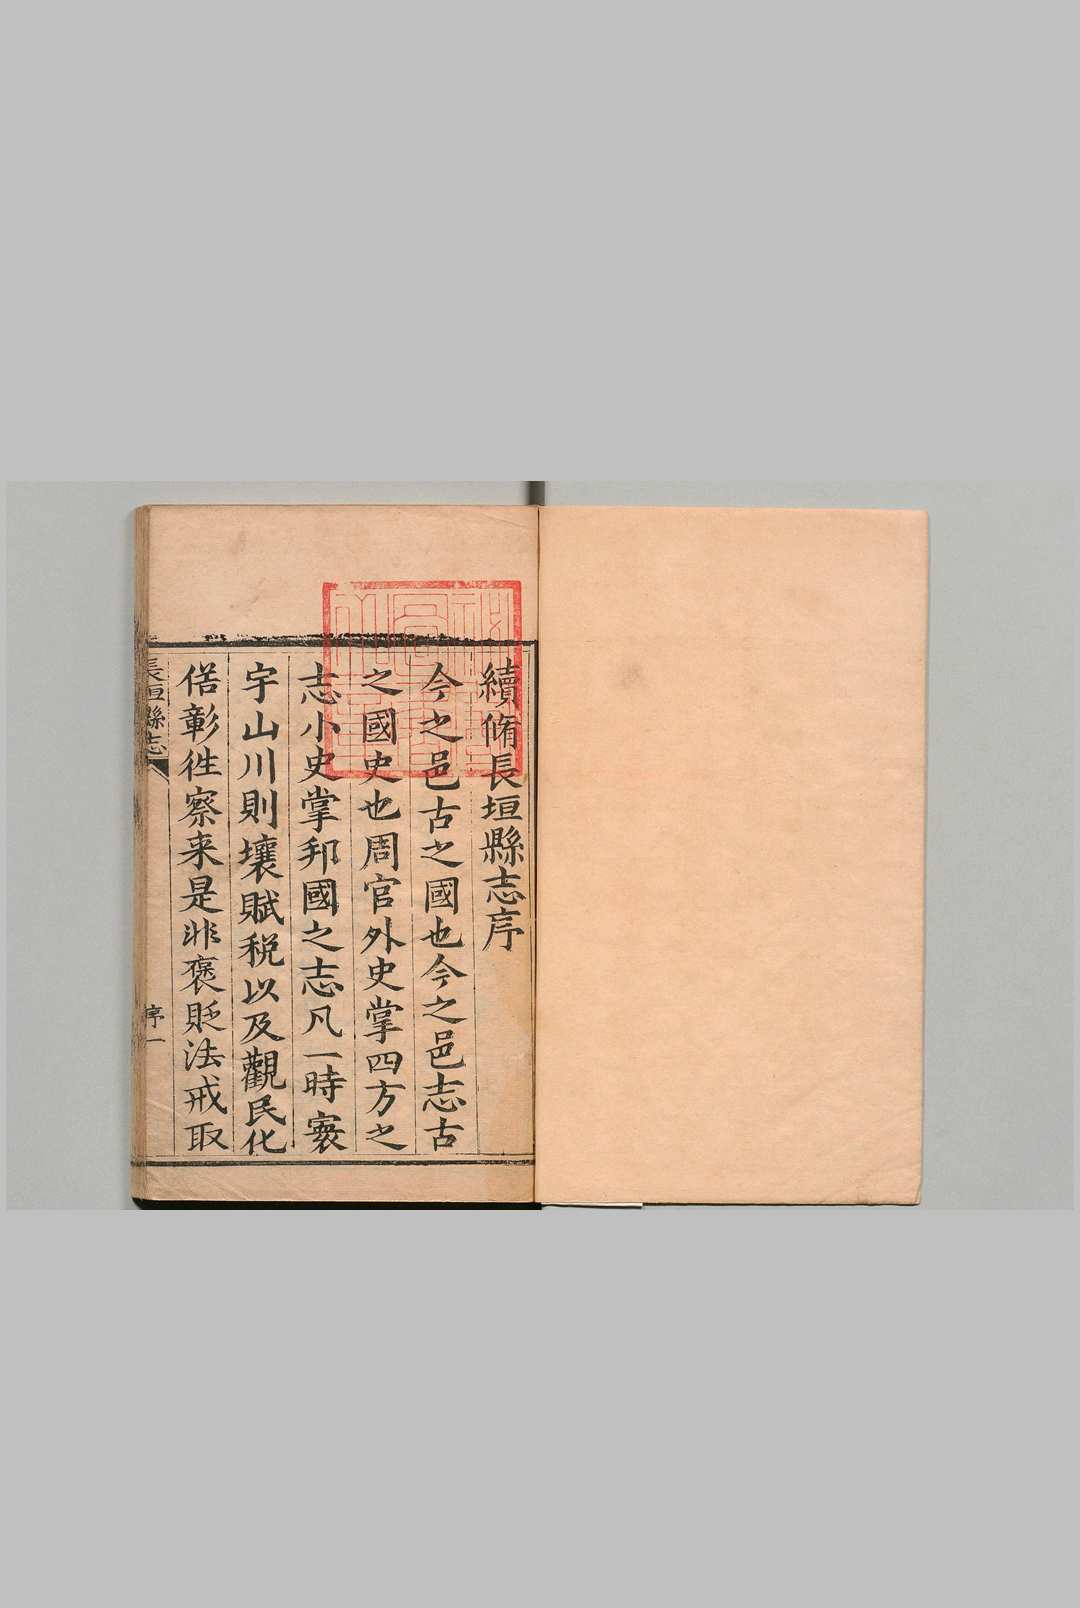 續脩長垣縣志序
今之邑古之國也今之邑志古
之國史也周官外史掌四方之
志小史掌邦國之志凡一時寰
宇山川則壤賦税以及觀民化
偺彰徃察来是非褒貶法戒取
長垣縣志
序一